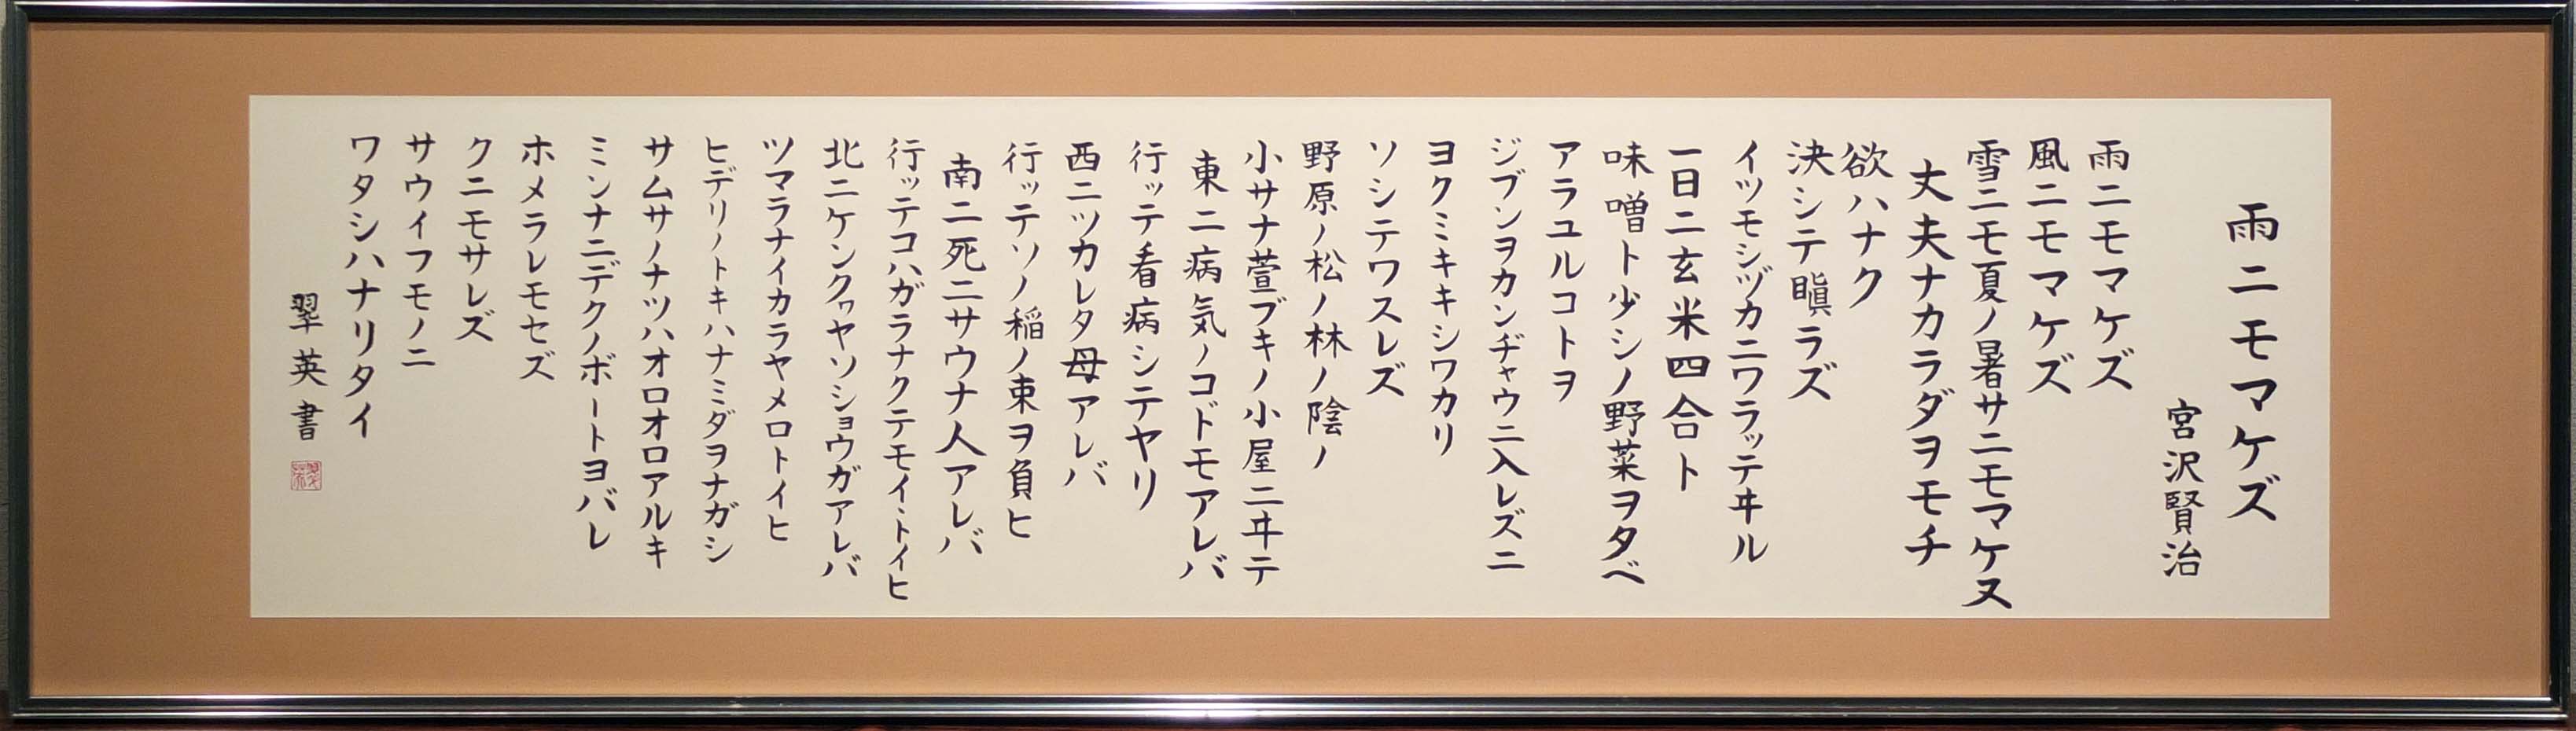 雨ニモマケズ
宮沢賢治
雨ニモマケズ
風ニモマケズ
雪ニモ夏ノ暑サニモマケヌ
丈夫ナカラダヲモチ
欲ハナク
決シテ瞋ラズ
イツモシヅカニワラッテヰル
一日ニ玄米四合ト
味噌ト少シノ野菜ヲタベ
アラユルコトヲ
ジブンヲカンヂャウニ入レズニ
ヨクミキキシワカリ
ソシテワスレズ
野原ノ松ノ林ノ陰ノ
小サナ萱ブキノ小屋ニヰテ
東ニ病気ノコドモアレバ
行ッテ看病シテヤリ
西ニツカレタ母アレバ
行ッテソノ稲ノ束ヲ負ヒ
南ニ死ニサウナ人アレバ
行ッテコハガラナクテモイヽトイヒ
北ニケンクヮヤソショウガアレバ
ツマラナイカラヤメロトイヒ
ヒデリノトキハナミダヲナガシ
サムサノナツハオロオロアルキ
ミンナニデクノボートヨバレ
ホメラレモセズ
クニモサレズ
サウイフモノニ
ワタシハナリタイ
翠英書